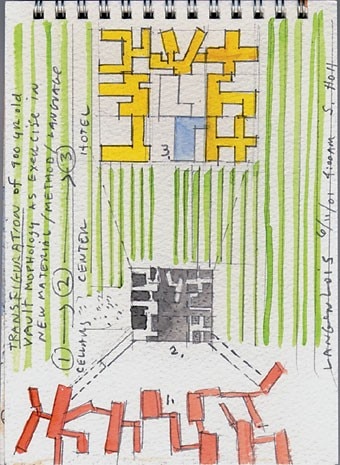 TRANSFIGURATION of 900 YR old
VAULT MORPHOLOGY AS EXERCISE in
NEW MATERIAL/METHOD/LANGUAGE
1 → 2 → 3
CELLARS CENTER HOTEL
3.
2.
1.
LANGENLOIS 6/11/01 4:00AM S. HOLL